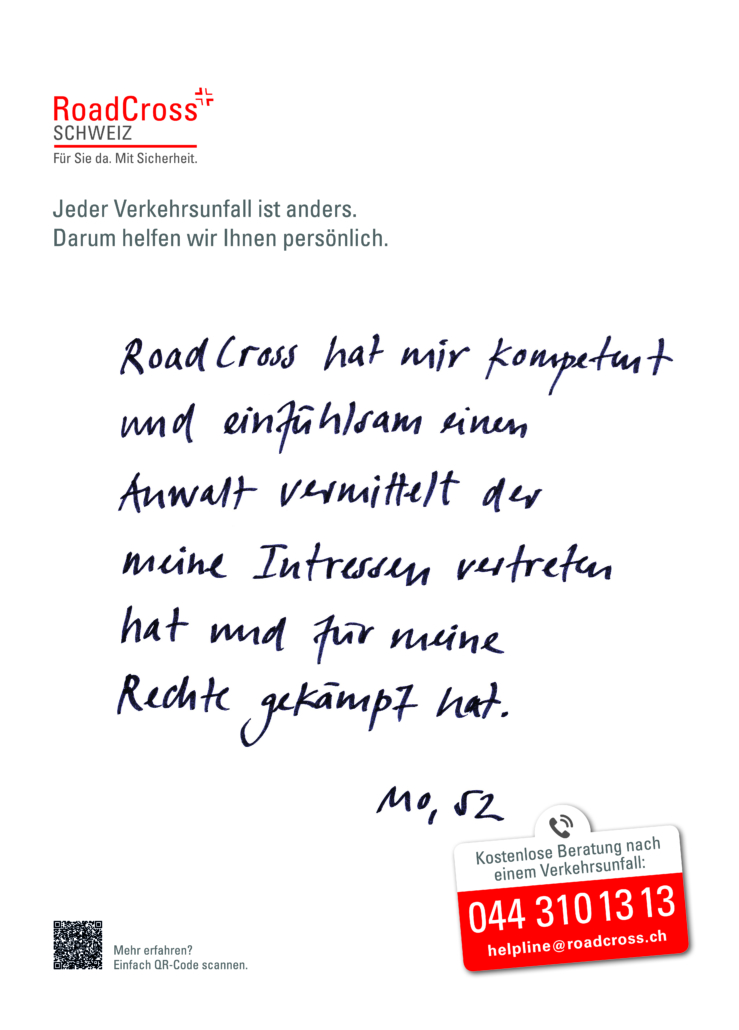 RoadCross
SCHWEIZ
Für Sie da. Mit Sicherheit.
Jeder Verkehrsunfall ist anders.
Darum helfen wir Ihnen persönlich.
RoadCross hat mir kompetent
und einfühlsam einen
Anwalt vermittelt der
meine Intressen vertreten
hat und für meine
Rechte gekämpft hat.
Mo, 52
Kostenlose Beratung nach
einem Verkehrsunfall:
044 310 13 13
helpline@roadcross.ch
Mehr erfahren?
Einfach QR-Code scannen.